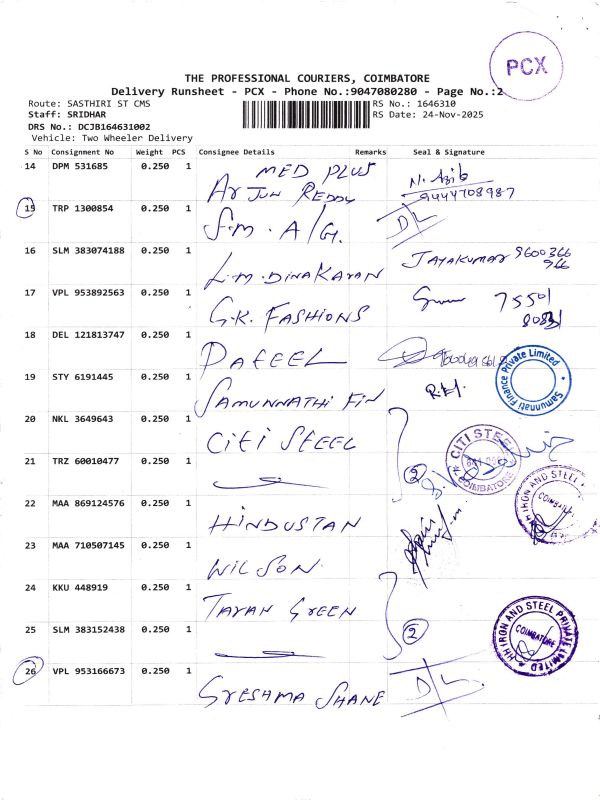 PCX
THE PROFESSIONAL COURIERS, COIMBATORE
Delivery Runsheet - PCX - Phone No.:9047080280 - Page No.:2
Route: SASTHIRI ST CMS RS No.: 1646310
Staff: SRIDHAR RS Date: 24-Nov-2025
DRS No.: DCJB164631002
Vehicle: Two Wheeler Delivery
S No Consignment No Weight PCS Consignee Details Remarks Seal & Signature
14 DPM 531685 0.250 1 MED PLUS
ARJUN REDDY N. Azib
9444708987
15 TRP 1300854 0.250 1 S.M. A/G. D/L
16 SLM 383074188 0.250 1 L.M. DINAKARAN JAYAKUMAR 9600366
966
17 VPL 953892563 0.250 1 G.K. FASHIONS 75501
18 DEL 121813747 0.250 1 DAFEEL
19 STY 6191445 0.250 1 SAMUNNATHI FIN
Samunnati Finance Private Limited
20 NKL 3649643 0.250 1 CITI STEEL
CITI STEEL
COIMBATORE
21 TRZ 60010477 0.250 1 2
22 MAA 869124576 0.250 1 HINDUSTAN
COIMBATORE
23 MAA 710507145 0.250 1 WILSON
24 KKU 448919 0.250 1 TARAN GREEN
25 SLM 383152438 0.250 1 2
HH IRON AND STEEL PRIVATE LIMITED
COIMBATORE
26 VPL 953166673 0.250 1 GRESHMA SHANE D/L